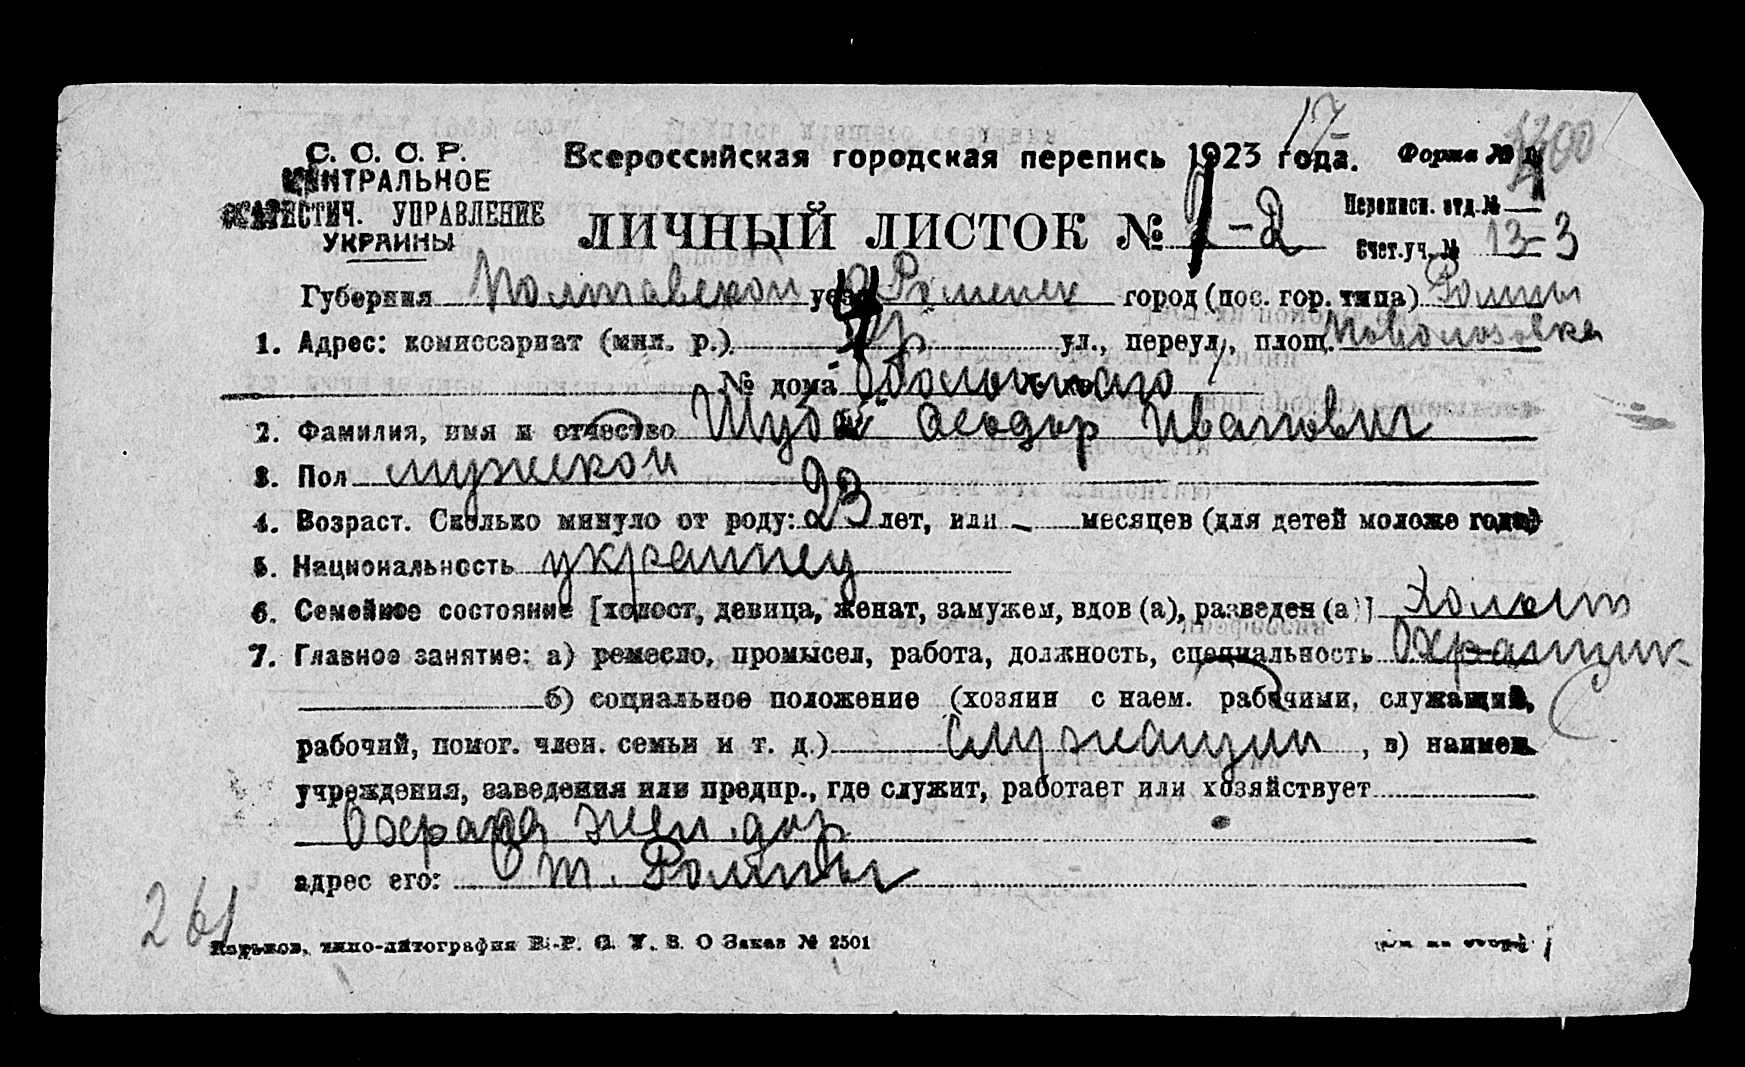 С. С. С. Р.
ЦЕНТРАЛЬНОЕ
СТАТИСТИЧ. УПРАВЛЕНИЕ
УКРАИНЫ
Всероссийская городская перепись 1923 года.
17
Форма №
ЛИЧНЫЙ ЛИСТОК № -2
Переписн. отд. №
Счет. уч. № 13-3
Губерния Полтавской уезд Роменск город (пос. гор. типа) Ромны
1. Адрес: комиссариат (мил. р.) ул., переул., площ.
№ дома
2. Фамилия, имя и отчество Шуба Феодор Иванович
3. Пол мужской
4. Возраст. Сколько минуло от роду: 23 лет, или — месяцев (для детей моложе года)
5. Национальность украинец
6. Семейное состояние [холост, девица, женат, замужем, вдов (а), разведен (а)] Холост
7. Главное занятие: а) ремесло, промысел, работа, должность, специальность Охранщик
б) социальное положение (хозяин с наем. рабочими, служащий,
рабочий, помог. член. семьи и т. д.) Служащий, в) наимен.
учреждения, заведения или предпр., где служит, работает или хозяйствует
Охрана жел. дор
адрес его: Ст. Ромны
261
Харьков, типо-литография В.-Р. С. У. В. О Заказ № 2501